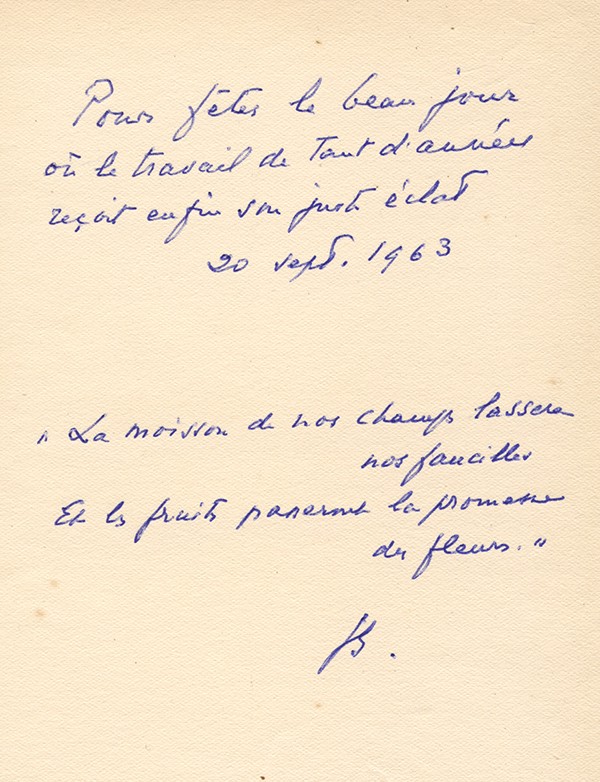 Pour fêter le beau jour
où le travail de tant d'années
reçoit enfin son juste éclat
20 sept. 1963
" La moisson de nos champs lassera
nos faucilles
Et les fruits passeront la promesse
des fleurs. "